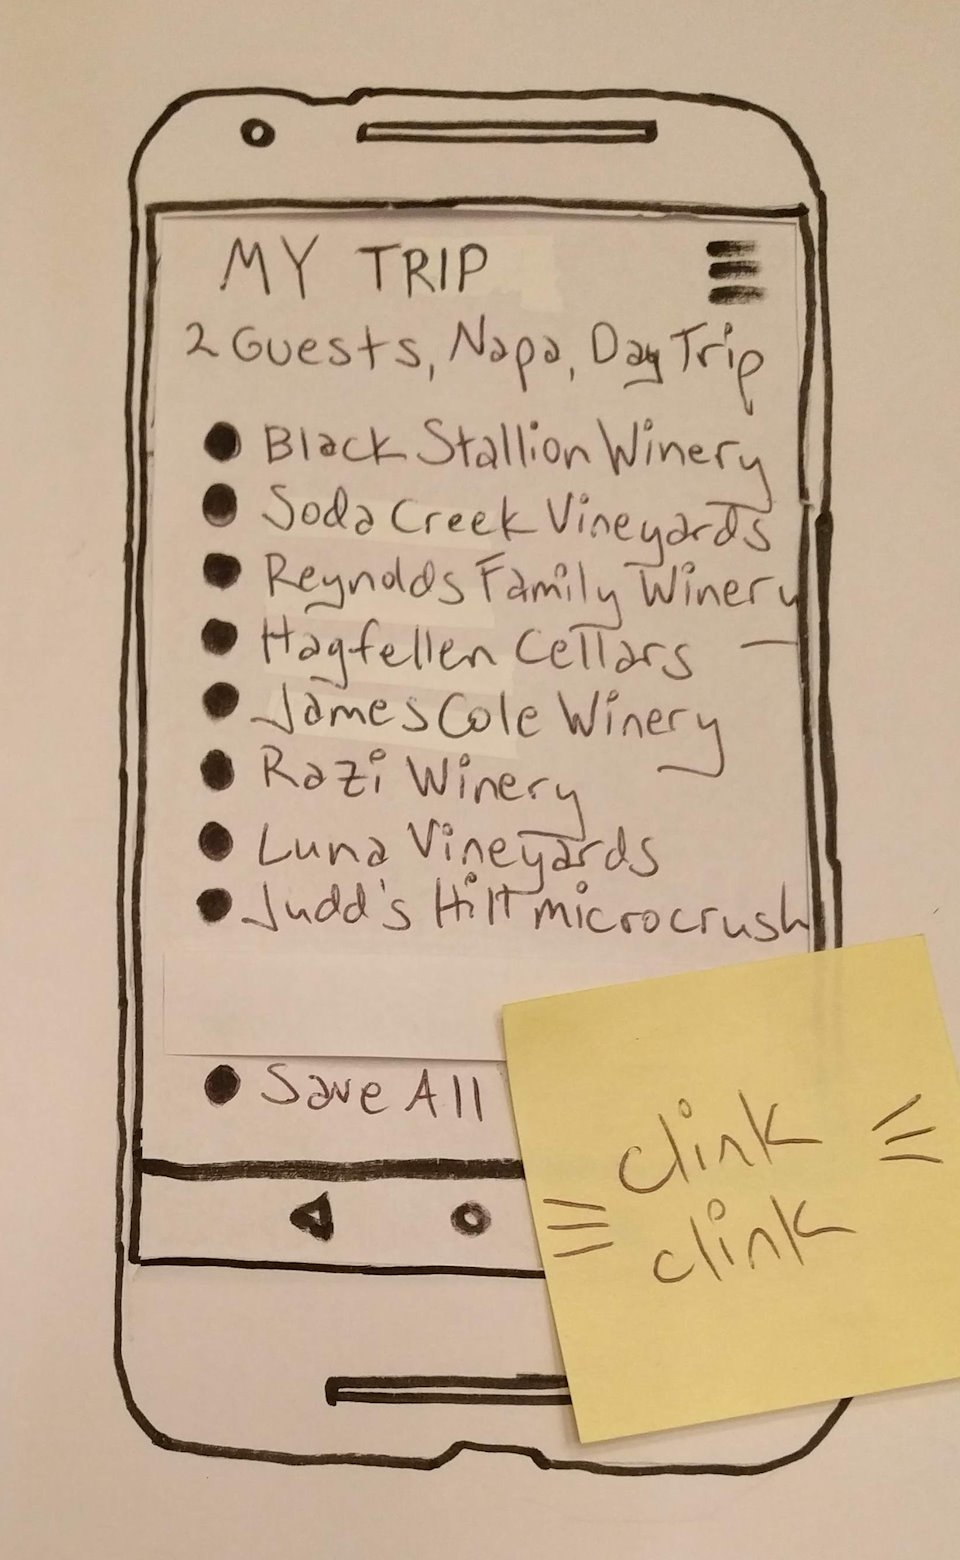 MY TRIP
2 Guests, Napa, Day Trip
Black Stallion Winery
Soda Creek Vineyards
Reynolds Family Winery
Hagfellen Cellars
James Cole Winery
Razi Winery
Luna Vineyards
Judd's Hill microcrush
Save All
clink
clink